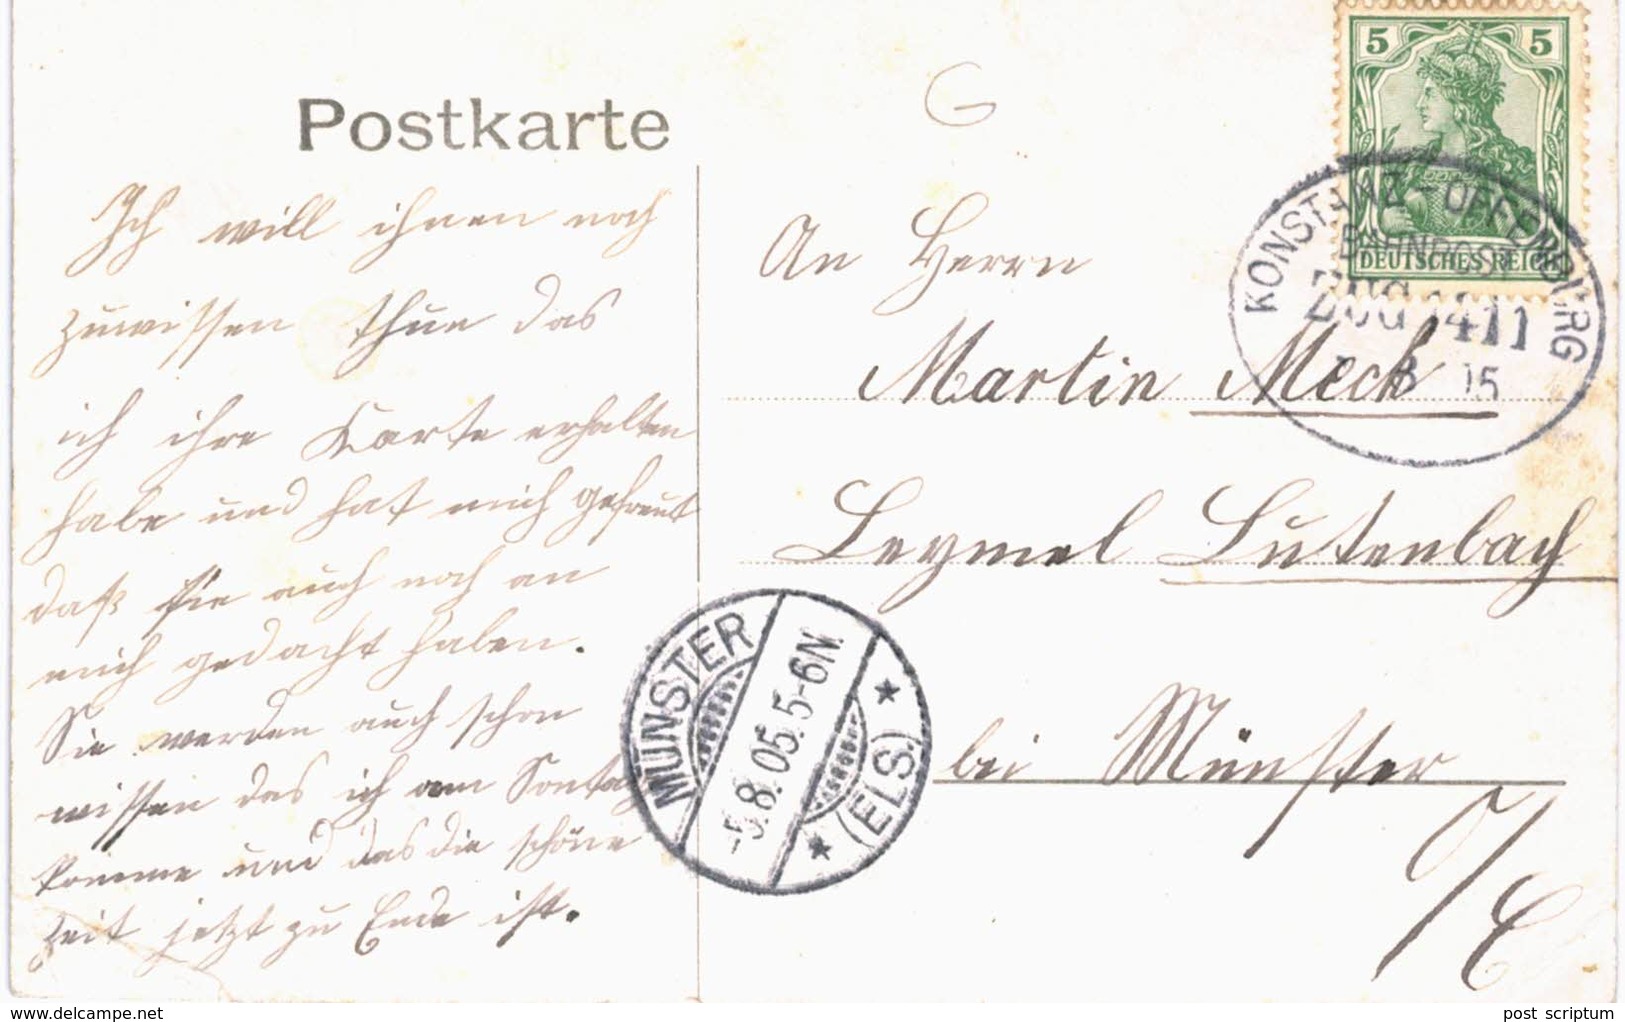 Postkarte
G
5 5
DEUTSCHES REICH
KONSTANZ - OFFENBURG
BAHNPOST
ZUG 1411
8 05
Ich will ihnen noch
zuwissen thun das
ich ihre Karte erhalten
habe und hat mich gefreut
daß sie auch noch an
mich gedacht haben.
Sie werden auch schon
wissen das ich am Sontag
komme und das die schöne
Zeit jetzt zu Ende ist.
An Herrn
Martin Meck
Lutenbach
bei Münster
i/E
MÜNSTER
-5.8.05.5-6N.
* (ELS.) *
www.delcampe.net
post scriptum